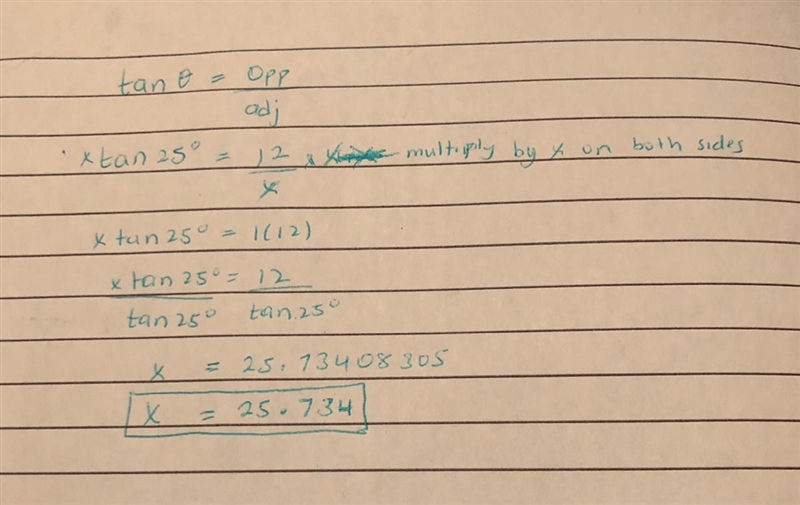 tan θ = opp
adj
· x tan 25° = 12 × x multiply by x on both sides
x
x tan 25° = 1(12)
x tan 25° = 12
tan 25° tan 25°
x = 25.73408305
x = 25.734